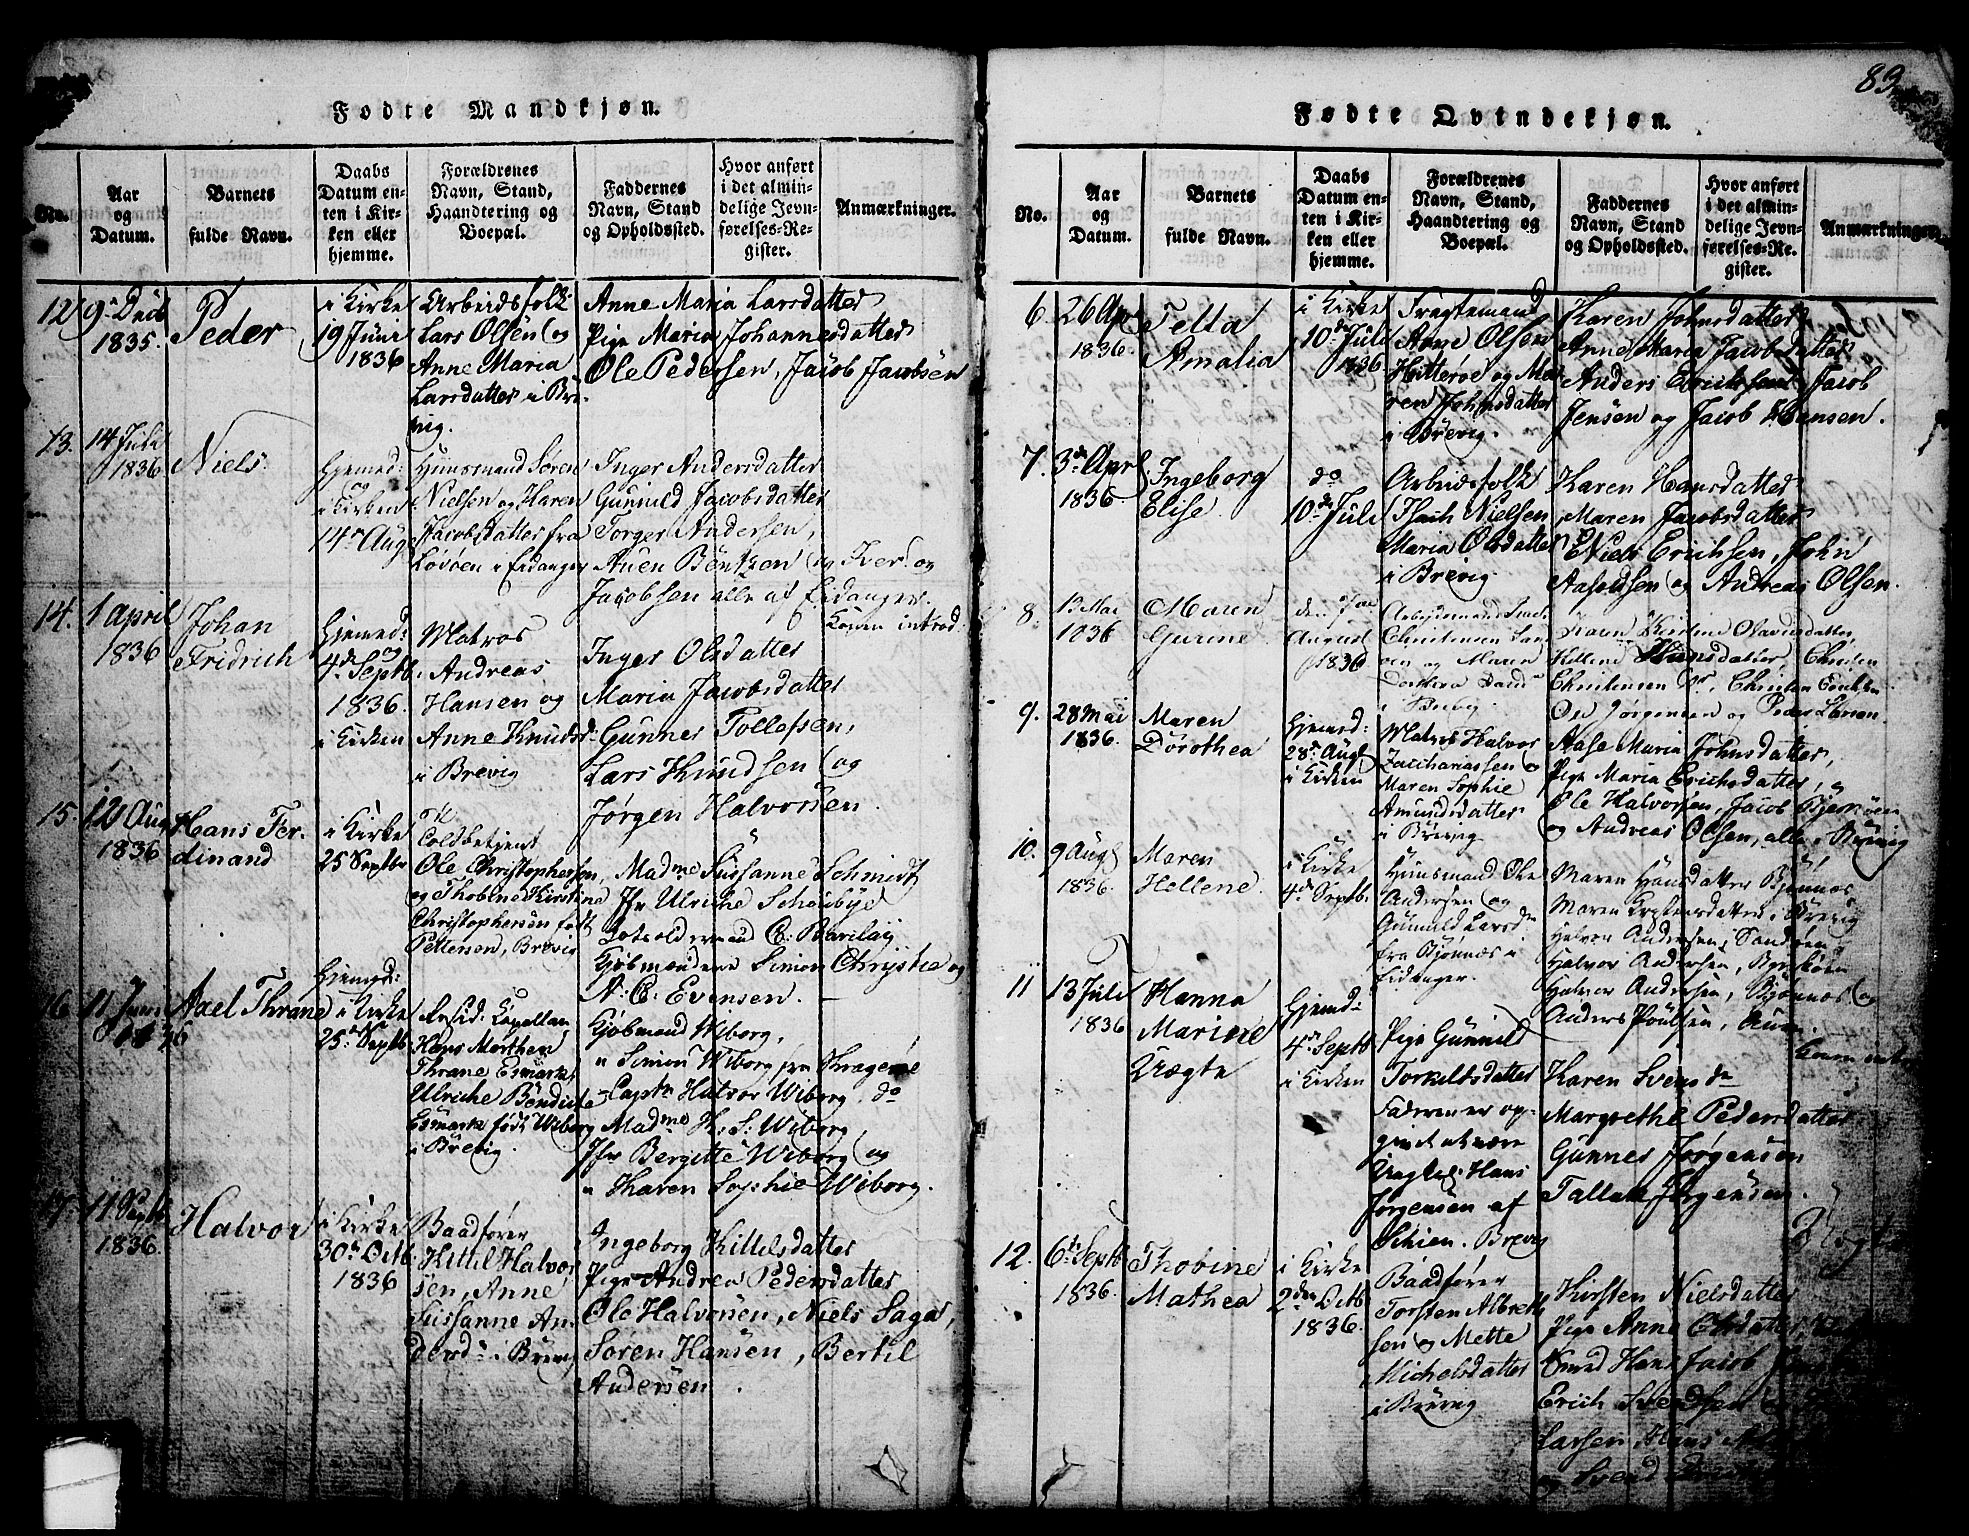 83
Fødte Mandkjøn.
No.
Aar
og
Datum.
Barnets
fulde Navn.
Daabs
Datum en-
ten i Kir-
ken eller
hjemme.
Forældrenes
Navn, Stand,
Haandtering og
Boepæl.
Faddernes
Navn, Stand
og Opholdssted.
Hvor anført
i det almin-
delige Jevn-
førelses-Re-
gister.
Anmærkninger.
12
9de Decb
1835.
Peder
i Kirke
19 Juni
1836
Arbeidsfolk
Lars Olsen og
Anne Maria
Larsdatter i Bre-
vig.
Anne Maria Larsdatter
Pige Maria Johannesdatter
Ole Pedersen, Jacob Jacobsen
13.
14 Juli
1836
Niels
Hjemed:
og
i Kirken
14de Aug
Huusmand Søren
Nielsen og Karen
Jacobsdatter fra
i Eidanger
Inger Andersdatter
Gunild Jacobsdatter
Torger Andersen,
Auen Bentsen og Iver og
Jacobsen alle af Eidanger
Konen introd:
14.
1 April
1836
Johan
Fridrich
Hjemed:
og
4de Septb
1836.
i Kirken
Matros
Andreas
Hansen og
Anne Knudsd:
i Brevig
Inger Olsdatter
Maria Jacobsdatter
Gunner Tollefsen,
Lars Knudsen og
Jørgen Halvorsen.
15.
12 Aug
1836
Hans Fer-
dinand
i Kirke
25 Septbr
Toldbetjent
Ole Christophersen,
og Thobine Kirstine
Christophersen født
Pettersen, Brevig
Madme Susanne Schmidt
Jfr Ulriche
C: Barclay
Kjøbmændene Simon Chrystie og
N: C: Evensen.
16.
11 Juni
1836
Axel Thrane
Hjemed:
i Kirke
25de Septb
Resid: Capellan
Hans Morthen
Thrane Esmark,
Ulriche Bendicte
Esmark født Wiborg
i Brevig.
Kjøbmand Wiborg,
" Simon Wiborg fra Kragerøe
Captn Halvor Wiborg do
Madme H. S. Wiborg,
Jfr Bergitte Wiborg og
" Karen Sophie Wiborg.
17.
11 Septb
1836.
Halvor
i Kirke
30de Octb
1836
Baadfører
Kittel Halvor-
sen, Anne
Sussanne An-
dersd: i Brevig
Ingeborg Kittelsdatter
Pige Andrea Pedersdatter
Ole Halvorsen, Niels Saga,
Søren Hansen, Bertil
Andersen.
Fødte Qvindekjøn.
No.
Aar
og
Datum.
Barnets
fulde Navn.
Daabs
Datum en-
ten i Kir-
ken eller
hjemme.
Forældrenes
Navn, Stand,
Haandtering og
Boepæl.
Faddernes
Navn, Stand
og Opholdssted.
Hvor anført
i det almin-
delige Jevn-
førelses-Re-
gister.
Anmærkninger.
6.
26 Apr
1836.
Tella
Amalia
i Kirke
10de Juli
1836
Fragtemand
Arne Olsen
Hitterøe og Ma-
ren Johnsdatter
i Brevig.
Karen Johnsdatter
Anne Maria Jacobsdatter
Anders Erichsen, Jacob
Jensen og Jacob Hansen.
7.
3de Apr
1836.
Ingeborg
Elise
do
10de Juli
Arbeidsfolk
Isach Nielsen
Maria Olsdatter
i Brevig.
Karen Hansdatter
Maren Jacobsdatter
Niels Erichsen, John
og Andreas Olsen.
8.
13 Mai
1836
Maren
Gurine
den 7de
August
1836
Christensen
og Maren
i Brevig
Karen Kirstine
Hansdatter, Christen
Christensen Christen
Jørgensen og Peder Larsen.
9.
28 Mai
1836.
Maren
Dorothea
Hjemed:
28de Aug
i Kirken
Matros Halvor
Zachariassen og
Maren Sophie
Amundsdatter
i Brevig
Aase Maria Johnsdatter,
Pige Maria Erichsdatter,
Ole Halvorsen, Jacob
og Andreas Olsen, alle i Brevig
10.
9 Aug
1836.
Maren
Hellene.
i Kirke
4de Septb.
Huusmand Ole
Andersen og
Gunuld Larsd
fra Bjønnæs i
Eidanger.
Maren Hansdatter Bjønnæs
Maren i Brevig
Halvor Andersen, Sandøen,
Halvor Andersen,
Halvor Andersen, Bjønnæs og
Anders Poulsen,
11
13 Juli
1836
Hanna
Marine
Vægte
Hjemd:
4de Septb
i Kirken
Pige Gunnild
Torkeltsdatter
Faderen er op-
givet at være
Hans
Jørgensen af
Schien. Brevig
Karen Svensdr
Margrethe Pedersdatter
Gunner Jørgensen
Tallak Jørgensen.
12.
6te Septb
1836.
Thobine
Mathea
i Kirke
2den Octb
1836.
Baadfører
Torsten Albret-
sen og Mette
Michelsdatter
i Brevig
Kirsten Nielsdatter
Pige Anne Olsdatter,
Smed Hans Jacob
Erich Svendsen
Larsen, Hans
og Svend